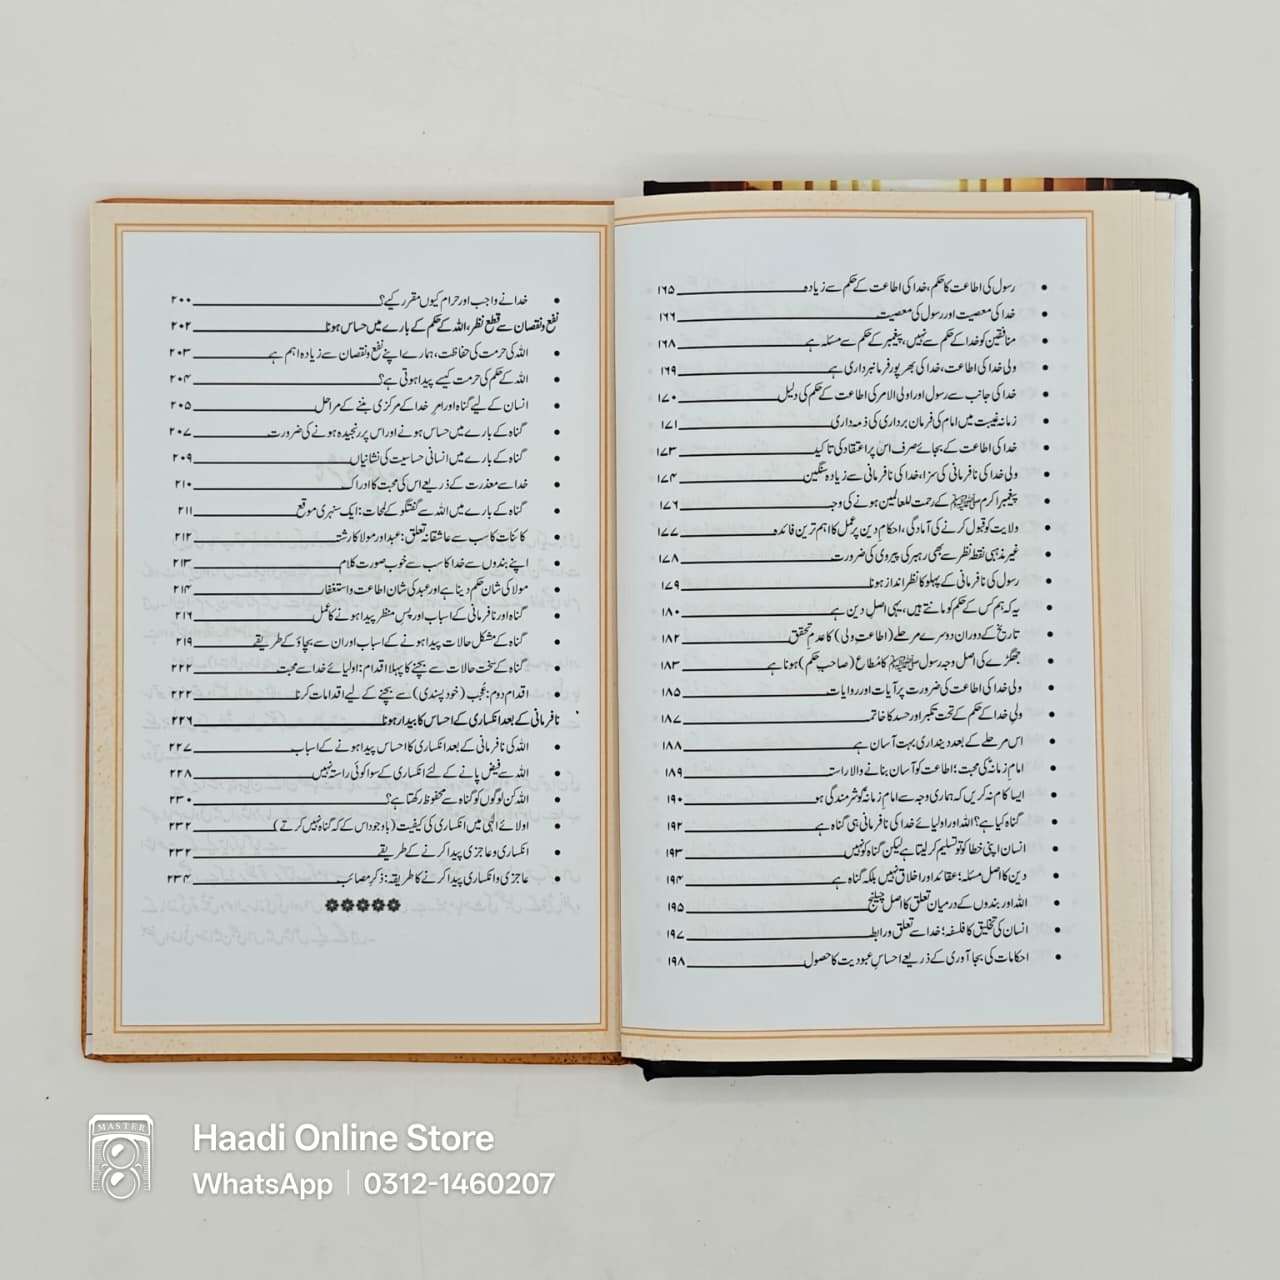 رسول کی اطاعت کا حکم، خدا کی اطاعت کے حکم سے زیادہ ۱۶۵
خدا کی معصیت اور رسول کی معصیت ۱۶۶
منافقین کو خدا کے حکم سے نہیں، پیغمبر کے حکم سے مسئلہ ہے ۱۶۸
ولی خدا کی اطاعت، خدا کی بھرپور فرمانبرداری ہے ۱۶۹
خدا کی جانب سے رسول اور اولی الامر کی اطاعت کے حکم کی دلیل ۱۷۰
زمانہ غیبت میں امام کی فرمان برداری کی ذمہ داری ۱۷۱
خدا کی اطاعت کے بجائے صرف اس پر اعتقاد کی تاکید ۱۷۳
ولی خدا کی نافرمانی کی سزا، خدا کی نافرمانی سے زیادہ سنگین ۱۷۴
پیغمبر اکرم ﷺ کے رحمت للعالمین ہونے کی وجہ ۱۷۶
ولایت کو قبول کرنے کی آمادگی، احکام دین پر عمل کا اہم ترین فائدہ ۱۷۷
غیر مذہبی نقطہ نظر سے بھی رہبر کی پیروی کی ضرورت ۱۷۸
رسول کی نافرمانی کے پہلو کا نظر انداز ہونا ۱۷۹
یہ کہ ہم کس کے حکم کو مانتے ہیں، یہی اصل دین ہے ۱۸۰
تاریخ کے دوران دوسرے مرحلے (اطاعت ولی) کا عدم تحقق ۱۸۲
جھگڑے کی اصل وجہ رسول ﷺ کا مُطاع (صاحب حکم) ہونا ہے ۱۸۳
ولی خدا کی اطاعت کی ضرورت پر آیات اور روایات ۱۸۵
ولی خدا کے حکم کے تحت تکبر اور حسد کا خاتمہ ۱۸۷
اس مرحلے کے بعد دینداری بہت آسان ہے ۱۸۸
امام زمانہؑ کی محبت؛ اطاعت کو آسان بنانے والا راستہ ۱۸۹
ایسا کام نہ کریں کہ ہماری وجہ سے امام زمانہؑ کو شرمندگی ہو ۱۹۰
گناہ کیا ہے؟ اللہ اور اولیائے خدا کی نافرمانی ہی گناہ ہے ۱۹۲
انسان اپنی خطا کو تو تسلیم کر لیتا ہے لیکن گناہ کو نہیں ۱۹۳
دین کا اصل مسئلہ؛ عقائد اور اخلاق نہیں بلکہ گناہ ہے ۱۹۴
اللہ اور بندوں کے درمیان تعلق کا اصل چیلنج ۱۹۵
انسان کی تخلیق کا فلسفہ؛ خدا سے تعلق و رابطہ ۱۹۷
احکامات کی بجا آوری کے ذریعے احساسِ عبودیت کا حصول ۱۹۸
خدا نے واجب اور حرام کیوں مقرر کیے؟ ۲۰۰
نفع و نقصان سے قطع نظر، اللہ کے حکم کے بارے میں حساس ہونا ۲۰۲
اللہ کی حرمت کی حفاظت، ہمارے اپنے نفع و نقصان سے زیادہ اہم ہے ۲۰۳
اللہ کے حکم کی حرمت کیسے پیدا ہوتی ہے؟ ۲۰۴
انسان کے لیے گناہ اور امرِ خدا کے مرکزی بننے کے مراحل ۲۰۵
گناہ کے بارے میں حساس ہونے اور اس پر رنجیدہ ہونے کی ضرورت ۲۰۷
گناہ کے بارے میں انسانی حساسیت کی نشانیاں ۲۰۹
خدا سے معذرت کے ذریعے اس کی محبت کا ادراک ۲۱۰
گناہ کے بارے میں اللہ سے گفتگو کے لمحات: ایک سنہری موقع ۲۱۱
کائنات کا سب سے عاشقانہ تعلق: عبد اور مولا کا رشتہ ۲۱۲
اپنے بندوں سے خدا کا سب سے خوب صورت کلام ۲۱۳
مولا کی شان حکم دینا ہے اور عبد کی شان اطاعت و استغفار ۲۱۴
گناہ اور نافرمانی کے اسباب اور پسِ منظر پیدا ہونے کا عمل ۲۱۶
گناہ کے مشکل حالات پیدا ہونے کے اسباب اور ان سے بچاؤ کے طریقے ۲۱۹
گناہ کے سخت حالات سے بچنے کا پہلا اقدام: اولیائے خدا سے محبت ۲۲۲
اقدام دوم: عُجب (خود پسندی) سے بچنے کے لیے اقدامات کرنا ۲۲۲
نافرمانی کے بعد انکساری کے احساس کا بیدار ہونا ۲۲۶
اللہ کی نافرمانی کے بعد انکساری کا احساس پیدا ہونے کے اسباب ۲۲۷
اللہ سے فیض پانے کے لئے انکساری کے سوا کوئی راستہ نہیں ۲۲۸
اللہ کن لوگوں کو گناہ سے محفوظ رکھتا ہے؟ ۲۳۰
اولائے الٰہی میں انکساری کی کیفیت (باوجود اس کے کہ گناہ نہیں کرتے) ۲۳۲
انکساری و عاجزی پیدا کرنے کے طریقے ۲۳۲
عاجزی و انکساری پیدا کرنے کا طریقہ: ذکرِ مصائب ۲۳۴
MASTER
Haadi Online Store
WhatsApp | 0312-1460207